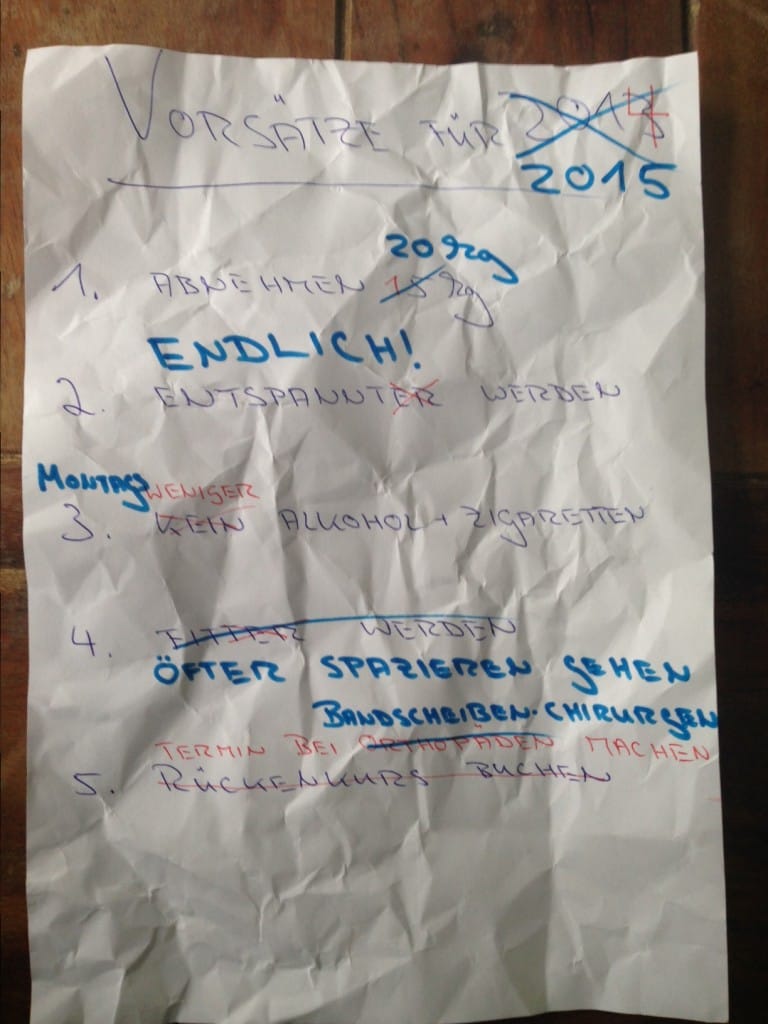 VORSÄTZE FÜR 2014
2015
20 kg
1. ABNEHMEN 15 kg
ENDLICH!
2. ENTSPANNTER WERDEN
MONTAGS WENIGER
3. KEIN ALKOHOL + ZIGARETTEN
4. FITTER WERDEN
ÖFTER SPAZIEREN GEHEN
BANDSCHEIBEN-CHIRURGEN
TERMIN BEI ORTHOPÄDEN MACHEN
5. RÜCKENKURS BUCHEN